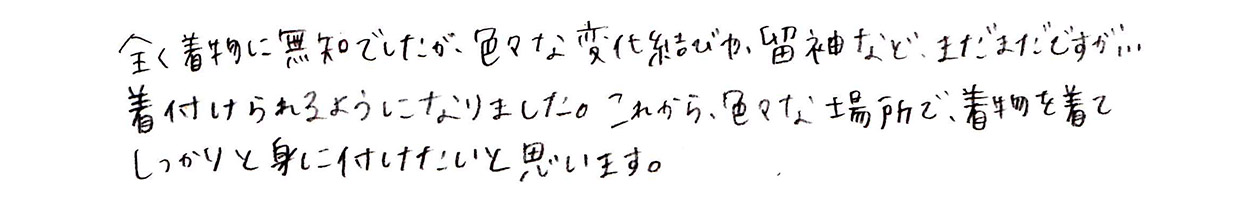 全く着物に無知でしたが、色々な変化結びや、留袖など、まだまだですが…
着付けられるようになりました。これから、色々な場所で、着物を着て
しっかりと身に付けたいと思います。